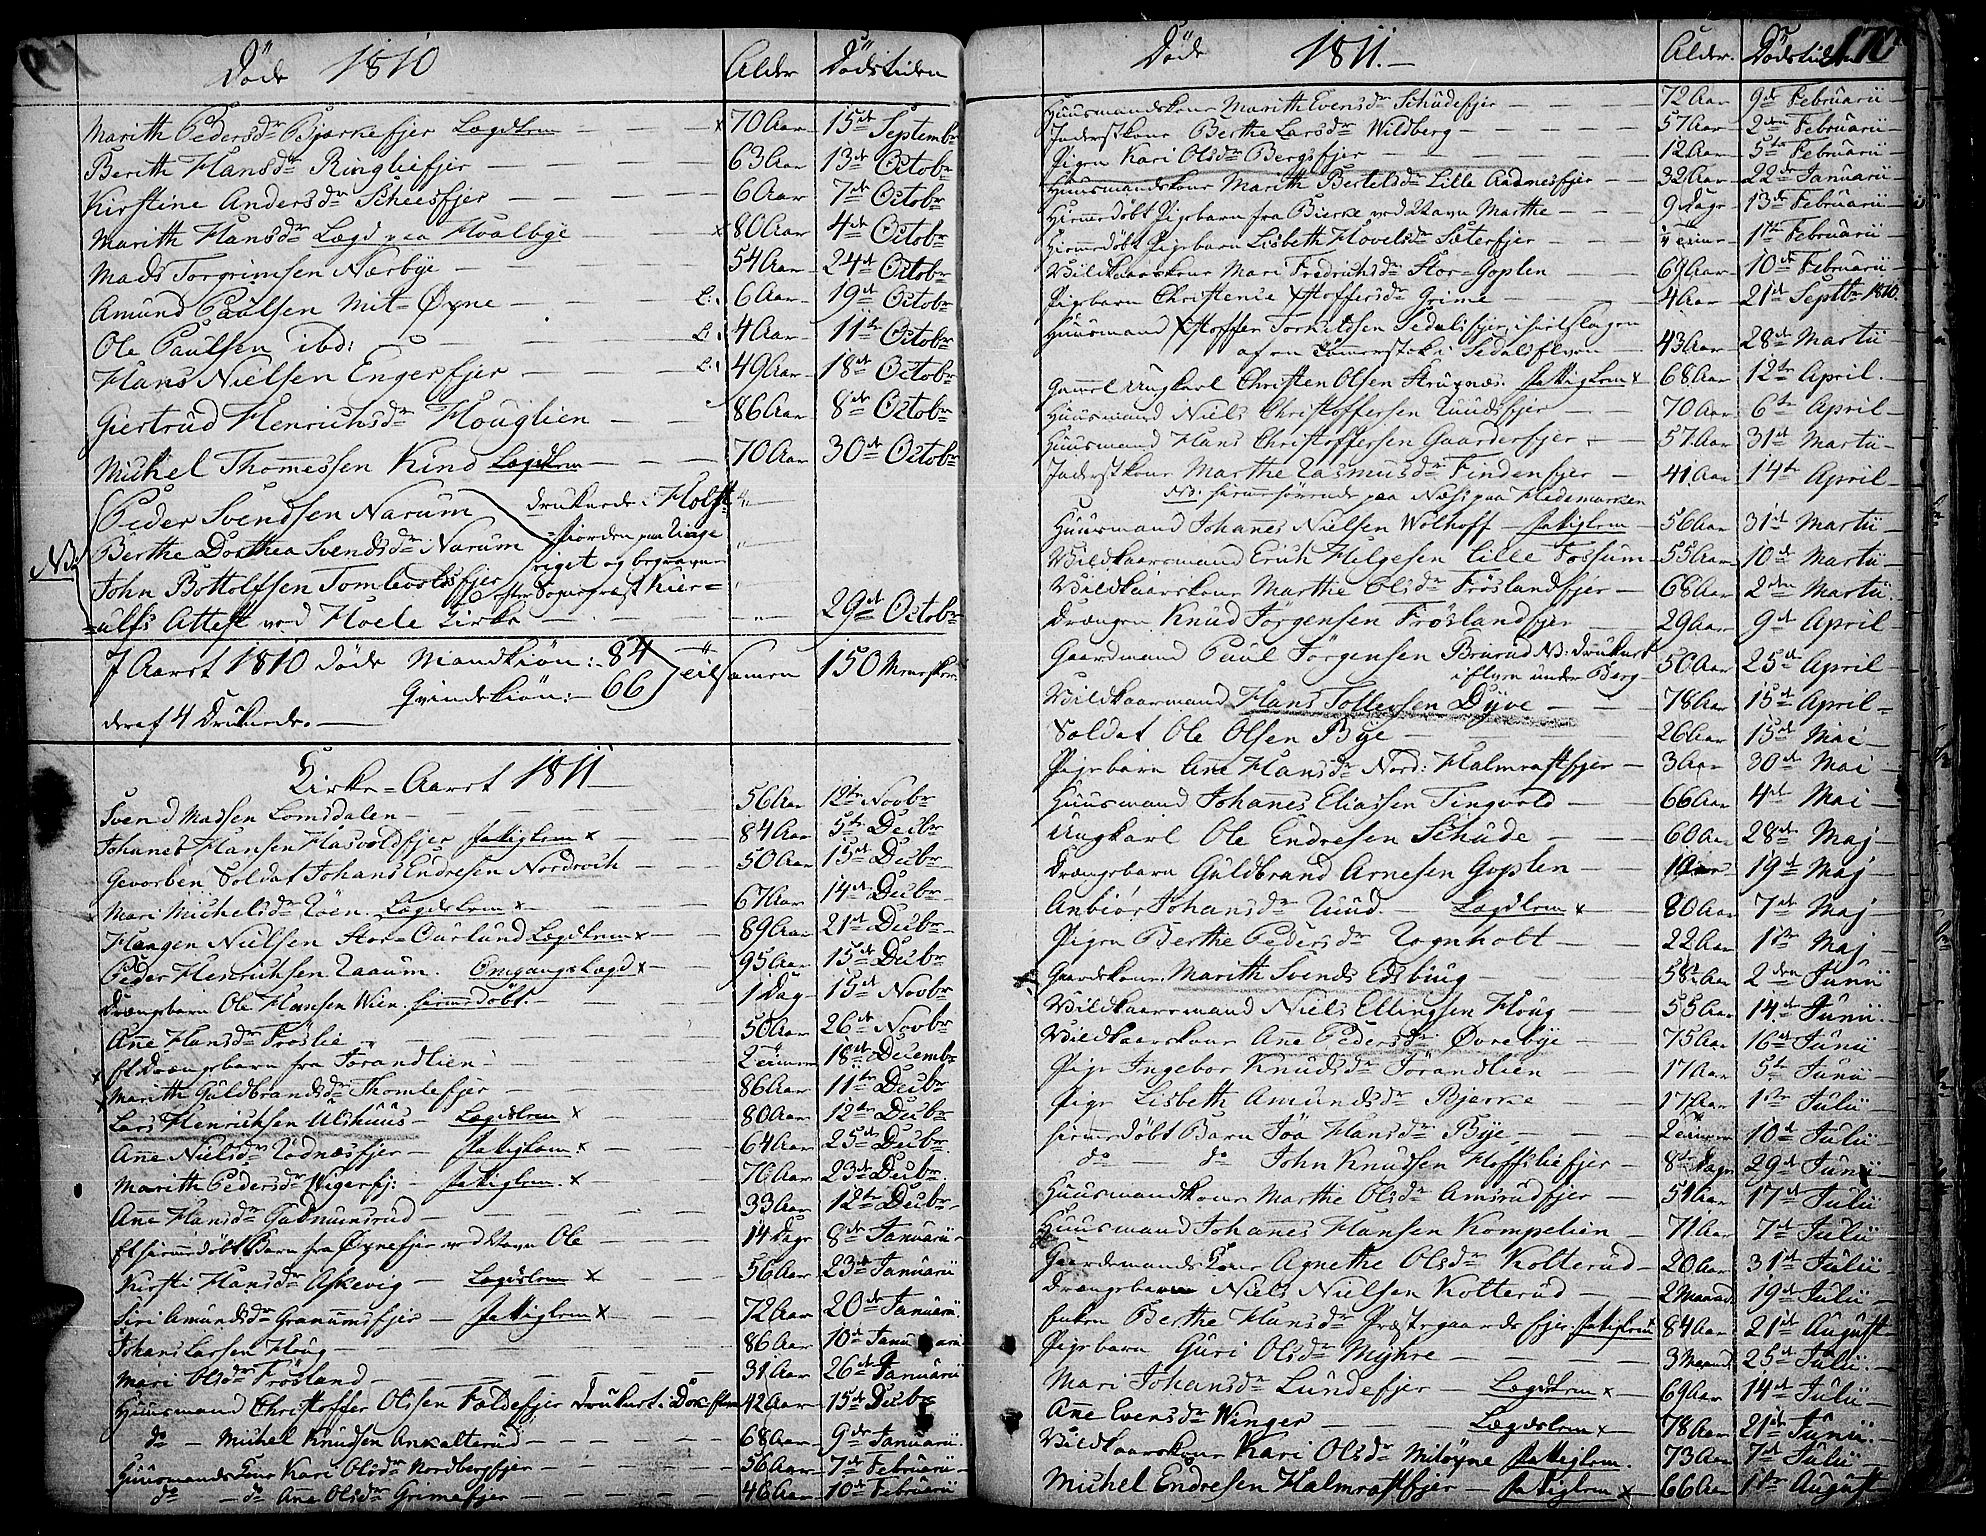 Døde 1810 Alder Dødstiden
Marith Pedersdr Bjerkefjer Lægdslem x 70 Aar 15de Septembr
Berith Hansdr Ringliefjer 63 Aar 13de Octobr
Kirstine Andersdr Scheesfjer 6 Aar 7de Octobr
Marith Hansdr Lægd paa Hvalbye x 80 Aar 4de Octobr
Mads Torgrimsen Nærbye 54 Aar 24de Octobr
Amund Paulsen Mit-Øyne L: 6 Aar 19de Octobr
Ole Paulsen ibd: L: 4 Aar 11te Octobr
Hans Nielsen Engerfjer L: 49 Aar 18de Octobr
Giertrud Henrichsdr Houglien 86 Aar 8de Octobr
Michel Thomessen Kind Lægdslem 70 Aar 30de Octobr
Peder Svendsen Narum druknede i Holst
NB Berthe Dorthea Svendsdr Narum fiorden paa Ringe
John Bottolfsen Tomlevoldsfjer riget og begraven efter Sogneprest Kier=
=ulfs Attest ved Hoele Kirke 29de Octobr
I Aaret 1810 døde Mandkiøn: 84 tilsamen 150 Mennesker
Qvindekiøn: 66
deraf 4 Druknede.
Kirke-Aaret 1811
Svend Madsen Lomsdalen 56 Aar 12te Novbr
Johanes Hansen Hasvoldsfjer fattiglem x 84 Aar 5te Decbr
Gevorben Soldat Johans Endresen Nordroch 50 Aar 15de Decbr
Mari Michelsdr Røen. Lægdslem x 67 Aar 14de Decbr
Haagen Nielsen Stor-Ourlund Lægdslem x 89 Aar 21de Decbr
Peder Henrichsen Raaum. Omgangslægd x 95 Aar 15de Decbr
Drængebarn Ole Hansen Wien. hiemedøbt. 1 Dag 15de Novbr
Ane Hansdr Frøslie 50 Aar 26de Novbr
Et Drængebarn fra Jørandlien 2 timer 18de Decembr
Marith Guldbrandsdr Thomlefjer 86 Aar 11te Decbr
Lars Henrichsen Ulshuus Lægdslem x 80 Aar 12te Decbr
Ane Nielsdr Rødnæsfjer fattiglem x 64 Aar 25de Decbr
Marith Pedersdr Wigerfj: fattiglem. x 76 Aar 23de Decbr
Ane Hansdr Gudmunsrud 33 Aar 12te Decbr
Et hiemedøbt Barn fra Øynefjer ved Navn Ole 14 Dage 8de Januarii
Kirsti Hansdr Askevig Lægdslem x 56 Aar 23de Januarii
Siri Amundsdr Granumsfjer fattiglem x 72 Aar 20de Januarii
Johans Larsen Houg 86 Aar 10de Januarii
Mari Olsdr Frøsland 31 Aar 26de Januarii
Huusmand Christoffer Olsen Faldefjer druknet i Dokkelven 42 Aar 15de Decbr
do Michel Knudsen Ankalterud 68 Aar 9de Januarii
Huusmandskone Kari Olsdr Nordbergsfjer 56 Aar 7de Februarii
do do Ane Olsdr Grimefjer 46 Aar 10de Februarii
Døde 1811. Alder. Dødstiden 170
Huusmandskone Marith Evensdr Schudefjer 72 Aar 9de Februarii
Inderstkone Berthe Larsdr Wildberg 57 Aar 2den Februarii
Pigen Kari Olsdr Bergsfjer 12 Aar 5te Februarii
Huusmandskone Marith Bertelsdr Lille Aadnesfjer 32 Aar 22de Januarii
Hiemedøbt Pigebarn fra Bierke ved Navn Marthe 9 Dage 13de Februarii
Hiemedøbt Pigebarn Lisbeth Hovelsdr Sæterfjer timer 11te Februarii
Vilkaarskone Mari Fredrichsdr Stor-Goplen 69 Aar 10de Februarii
Pigebarn Christense Xstoffersdr Grime 4 Aar 21de Septbr 1810.
Huusmand Xstoffer Torkildsen Sedalsfjer ihielslagen
af en Tømerstok i Sedalselven 43 Aar 28de Martii
Gamel Ungkarl Christen Olsen Struxnæs. fattiglem x 68 Aar 12te April
Huusmand Niels Christoffersen Ruudsfjer 70 Aar 6te April
Huusmand Hans Christoffersen Gaardersfjer 57 Aar 31de Martii
Inderstkone Marthe Rasmusdr Findenfjer 41 Aar 14de April
NB. hiemehørende paa Næs paa Hedemarken
Huusmand Johanes Nielsen Wolhoff fattiglem 56 Aar 31de Martii
Vilkaarsmand Erich Helgesen Lille Fossum 55 Aar 10de Martii
Vilkaarskone Marthe Olsdr Frøslandfjer 68 Aar 2den Martii
Drængen Knud Jørgensen Frøslandfjer 29 Aar 9de April
Gaardmand Paul Jørgensen Brurud NB: druknet
i elven under Berg 50 Aar 25de April
Vilkaarmand Hans Tollevsen Dyve 78 Aar 15de April
Soldat Ole Olsen Bye 26 Aar 15de Mai
Pigebarn Ane Hansdr Nord: Halmrastfjer 3 Aar 30de Mai
Huusmand Johanes Eliassen Tingvold 66 Aar 4de Mai
Ungkarl Ole Endresen Schude 60 Aar 28de Maj
Drængebarn Guldbrand Arnesen Goplen 19de Maj
Anbiør Johansdr Ruud. Lægdslem x 80 Aar 7de Maj
Pigen Berthe Pedersdr Rognholt 22 Aar 1ste Maj
Gaardkone Marith Svends Edsbüyg 58 Aar 2den Junii
Vilkaarsmand Niels Ellingsen Houg 55 Aar 14de Junii
Vilkaarskone Ane Pedersdr Øvrebye 75 Aar 16de Junii
Pige Ingebor Knudsdr Jørandlien 17 Aar 5te Junii
Pige Lisbeth Amundsdr Bjerke 17 Aar 1ste Julii
hiemedøbt Barn Jøa Hansdr Bye 2 timer 10de Julii
do do John Knudsen Hoffsliefjer 8te Dage 29de Junii
Huusmandkone Marthe Olsdr Amsrudfjer 51 Aar 17de Julii
Huusmand Johannes Hansen Kompelien 71 Aar 7de Julii
Gaardemands Kone Agnethe Olsdr Kolterud 20 Aar 31de Julii
Drængebarn Niels Nielsen Kolterud 2 Maaned 19de Julii
Enken Berthe Hansdr Præstegaardsfjer. fattiglem 84 Aar 21de August
Pigebarn Guri Olsdr Myhre 3 Maaned 25de Julii
Mari Johansdr Lundefjer Lægdslem x 69 Aar 14de Julii
Ane Evensdr Winger Lægdslem x 78 Aar 21de Junii
Vilkaarskone Kari Olsdr Mitøyne fattiglem. 73 Aar 7de Julii
Michel Endresen Halmrastfjer fattiglem x 66 Aar 1ste August